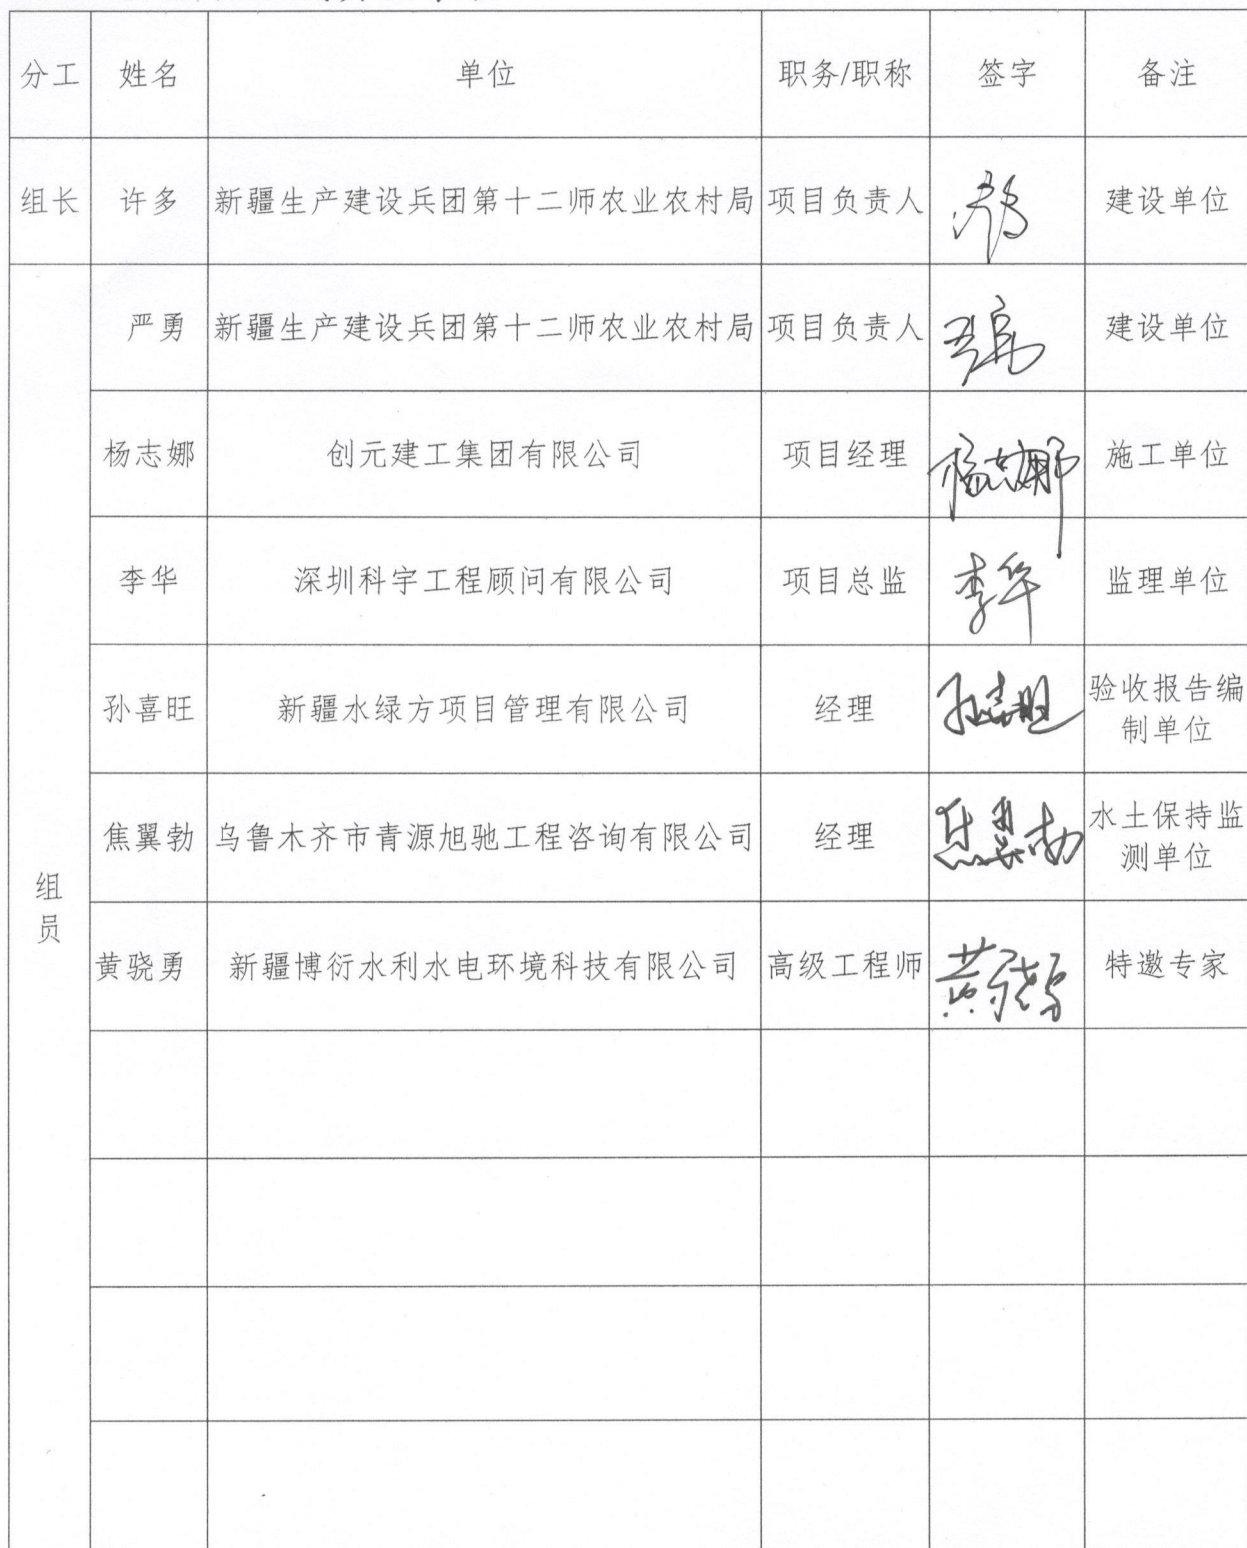 分工 姓名 单位 职务/职称 签字 备注
组长 许多 新疆生产建设兵团第十二师农业农村局 项目负责人 建设单位
组员
严勇 新疆生产建设兵团第十二师农业农村局 项目负责人 建设单位
杨志娜 创元建工集团有限公司 项目经理 杨志娜 施工单位
李华 深圳科宇工程顾问有限公司 项目总监 李华 监理单位
孙喜旺 新疆水绿方项目管理有限公司 经理 孙喜旺 验收报告编
制单位
焦翼勃 乌鲁木齐市青源旭驰工程咨询有限公司 经理 焦翼勃 水土保持监
测单位
黄骁勇 新疆博衍水利水电环境科技有限公司 高级工程师 黄骁勇 特邀专家